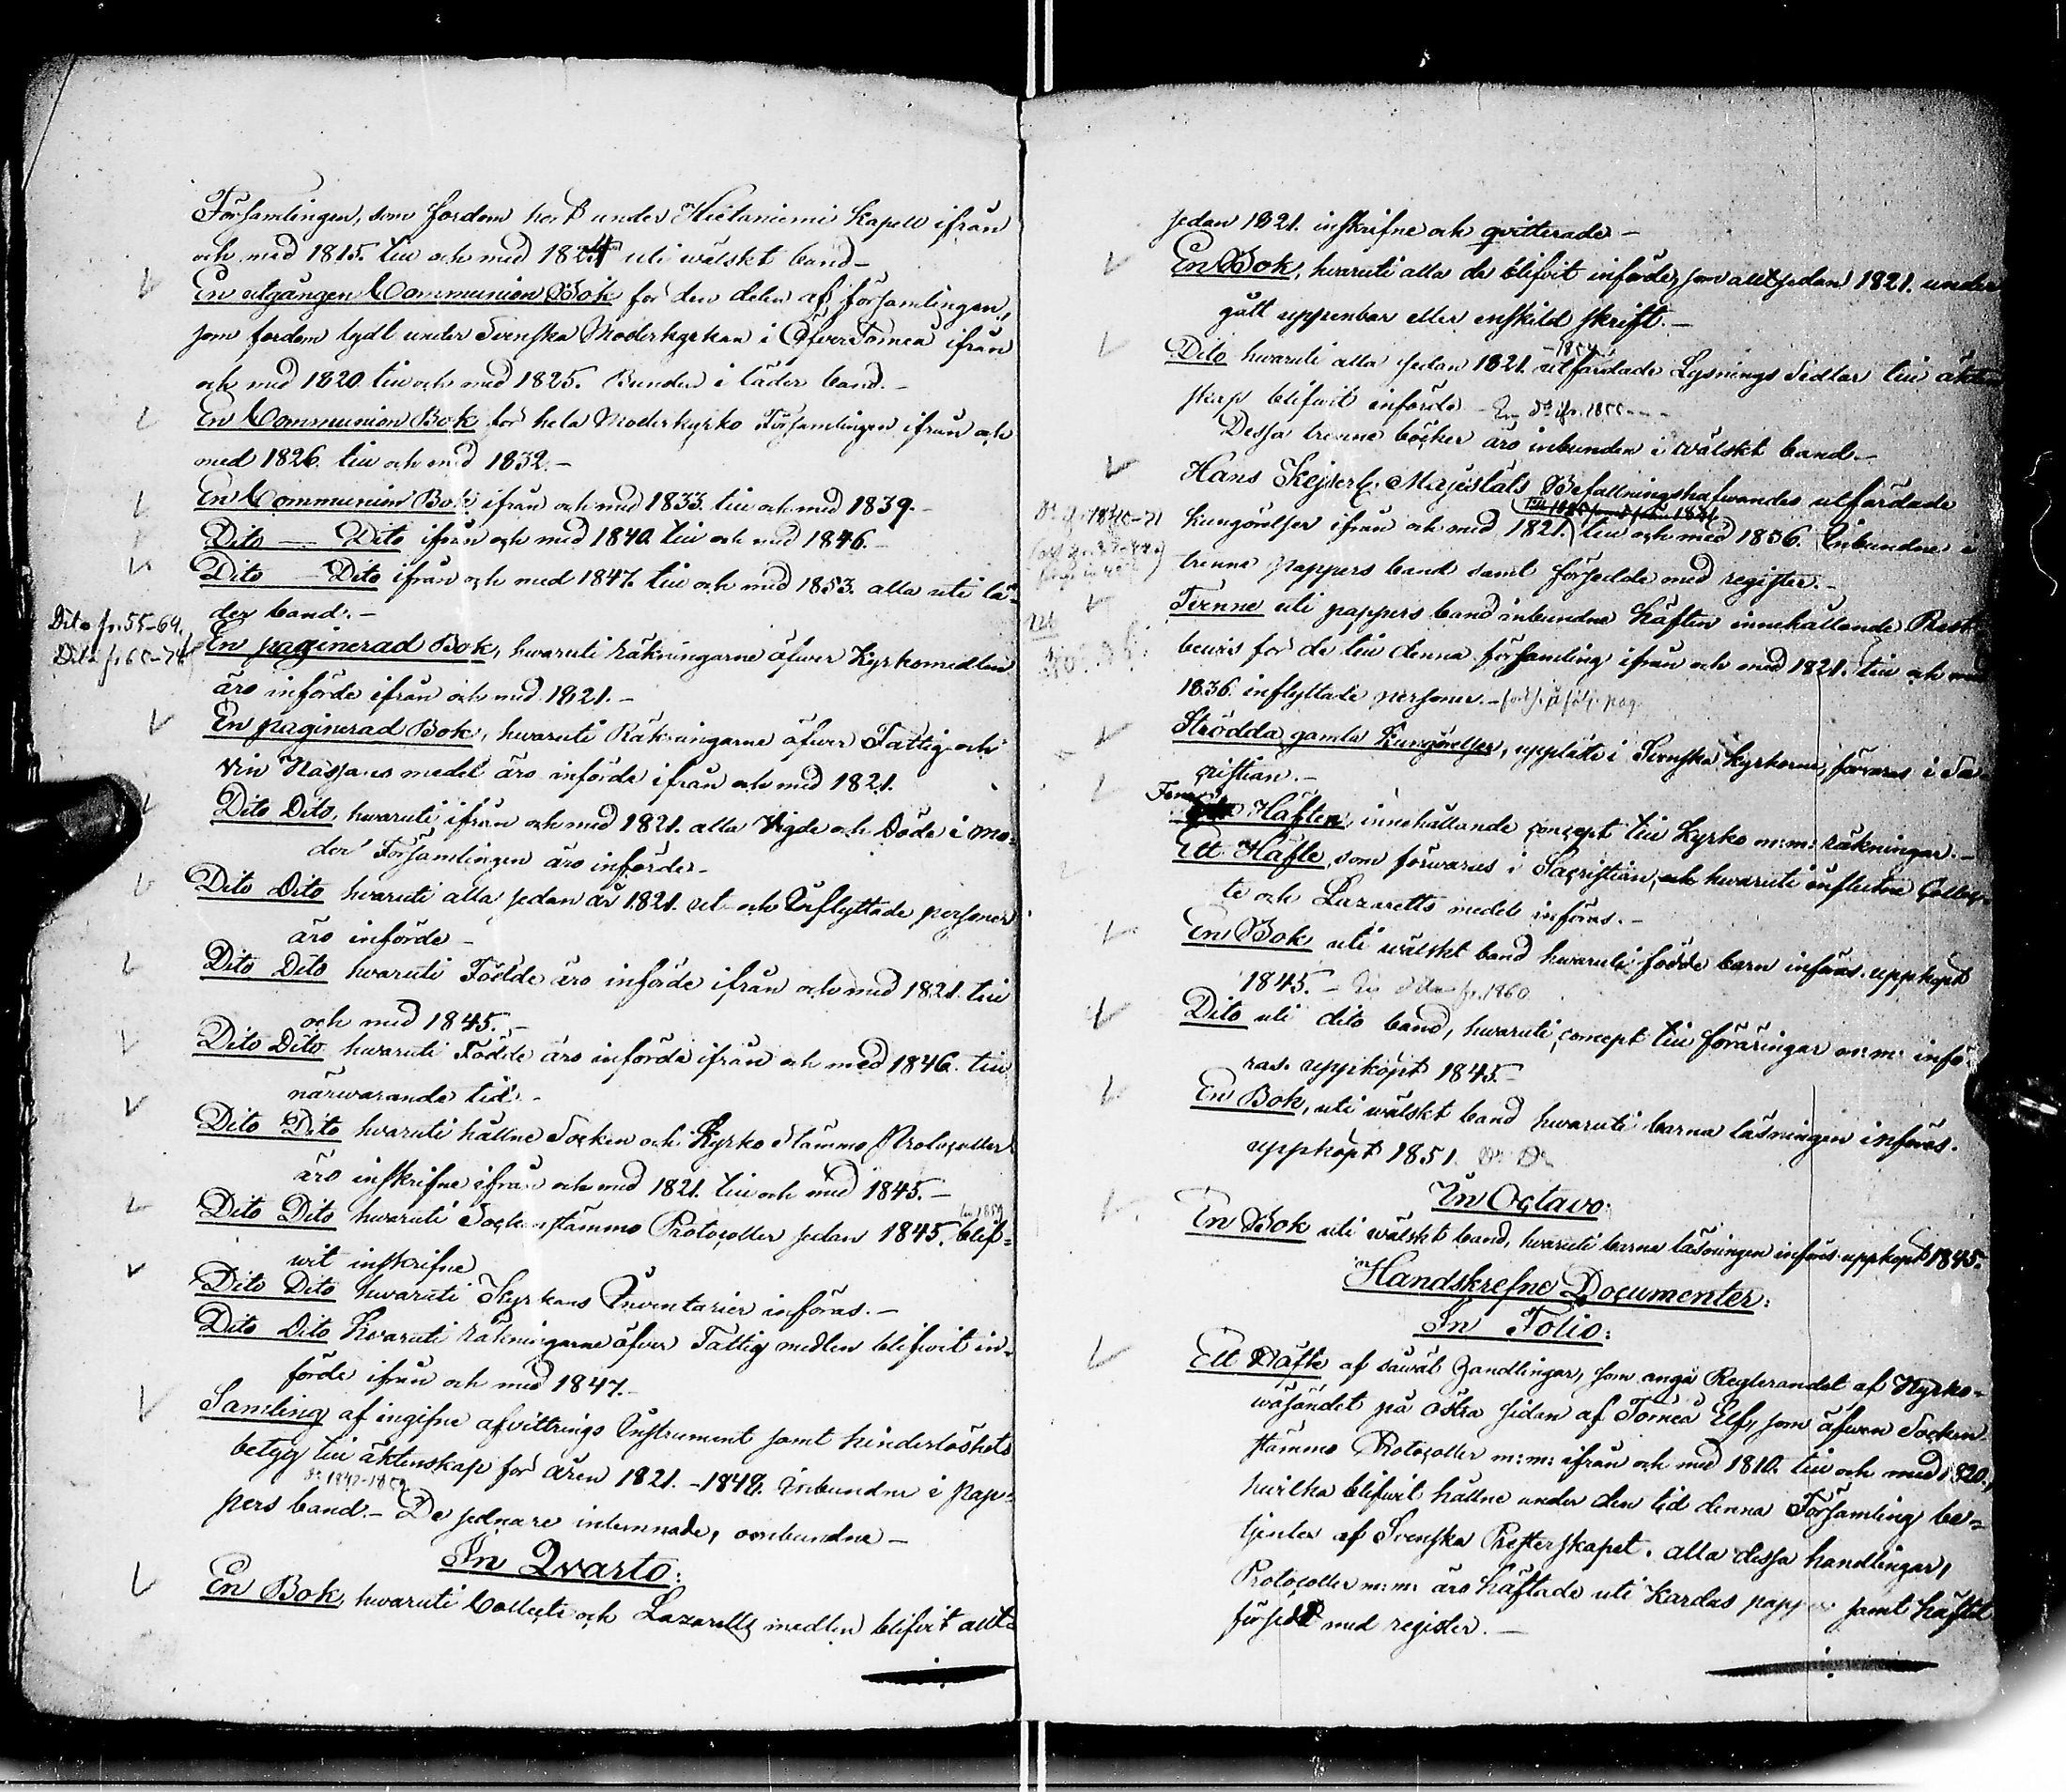 Församlingen, som fordom hört under Hietaniemi Kapell ifrån
och med 1815. till och med 1824 uti wälskt band –
En utgången Communion Bok för den delen af församlingen,
som fordom lydt under Svenska Moderkyrkan i ÖfverTorneå ifrån
och med 1820 till och med 1825. Bunden i läder band. –
En Communion Bok för hela Moderkyrko Församlingen ifrån och
med 1826. till och med 1832. –
En Communion Bok ifrån och med 1833. till och med 1839. –
Dito — Dito ifrån och med 1840. till och med 1846. –
Dito — Dito ifrån och med 1847. till och med 1853. alla uti lä=
der band. –
Dito fr. 55–69.
Dito fr 60–74
En paginerad Bok, hwaruti räkningarne öfwer Kyrkomedlen
äro införde ifrån och med 1821. –
En paginerad Bok, hwaruti Räkningarne öfwer Fattig och
medel äro införde ifrån och med 1821.
Dito Dito, hwaruti ifrån och med 1821. alla Vigde och Döde i Mo=
der Församlingen äro införde. –
Dito Dito hwaruti alla sedan år 1821. ut och Inflyttade personer
äro införde –
Dito Dito hwaruti Födde äro införde ifrån och med 1821. till
och med 1845. –
Dito Dito hwaruti Födde äro införde ifrån och med 1846. till
närwarande tid. –
Dito Dito hwaruti hållne Socken och Kyrko Stämmo Protocoller
äro inskrifne ifrån och med 1821. till och med 1845. –
till 1859
Dito Dito hwaruti Sockenstämmo Protocoller sedan 1845. blif=
wit inskrifne
Dito Dito hwaruti Kyrkans Inventarier införas. –
Dito Dito Hwaruti räkningarne öfver Fattig medlen blifwit in=
förde ifrån och med 1847. –
Samling af ingifne afvittrings Instrument samt hinderlöshets
betyg till äktenskap för åren 1821. – 1848. Inbundne i pap=
pers band. – De sednare inlemnade, oinbundne –
In Qvarto:
En Bok, hwaruti Collecte och Lazaretts medlen blifvit allt=
sedan 1821. inskrifne och qvitterade –
En Bok, hwaruti alla de blifvit införde, som allt sedan 1821. under
gått uppenbar eller enskild skrift. –
– 1854.
Dito hwaruti alla sedan 1821. utfärdade Lysnings Sedlar till äkten
skap blifwit införde – En do fr. 1855 –
Dessa trenne böcker äro inbunden i wälskt band. –
Hans Kejserl. Majestäts Befallningshafwandes utfärdade
Kungörelser ifrån och med 1821. till och med 1836. Inbundne i
trenne pappers band samt försedde med register. –
Tvenne uti pappers band inbundne häften innehållande Prest
bevis för de till denna församling ifrån och med 1821. till och med
1836. inflyttade personer. – forts. å följ. pag.
Strödda gamla Kungörelser, uppläste i Svenska Kyrkorne, förvaras i Sa
cristian. –
Häften, innehållande concept till Kyrko m:m: räkningar. –
Ett Häfte, som förwaras i Sacristian, och hwaruti influtne Collec=
te och Lazaretts medel införas. –
En Bok uti wälskt band hwaruti födde barn införas. uppköpt
1845. – En dito fr. 1860
Dito uti dito band, hwaruti concept till föräringar m:m: infö
ras. uppköpt 1845. –
En Bok, uti wälskt band hwaruti barna läsningen införas.
uppköpt 1851. Do Do
In Octavo:
En Bok uti wälskt band, hwaruti barna läsningen införas. uppköpt 1845.
Handskrefne Documenter:
In Folio:
Ett Häfte af såwäl Handlingar, som angå Reglerandet af Kyrko=
wäsändet på Östra sidan af Torneå Elf, som äfwen Socken
stämmo Protocoller m:m: ifrån och med 1810. till och med 1820.,
hwilka blifwit hållne under den tid denna Församling be=
tjentes af Svenska Presterskapet. alla dessa handlingar,
Protocoller m:m: äro häftade uti Kardus papper samt häftet
försedt med register. –